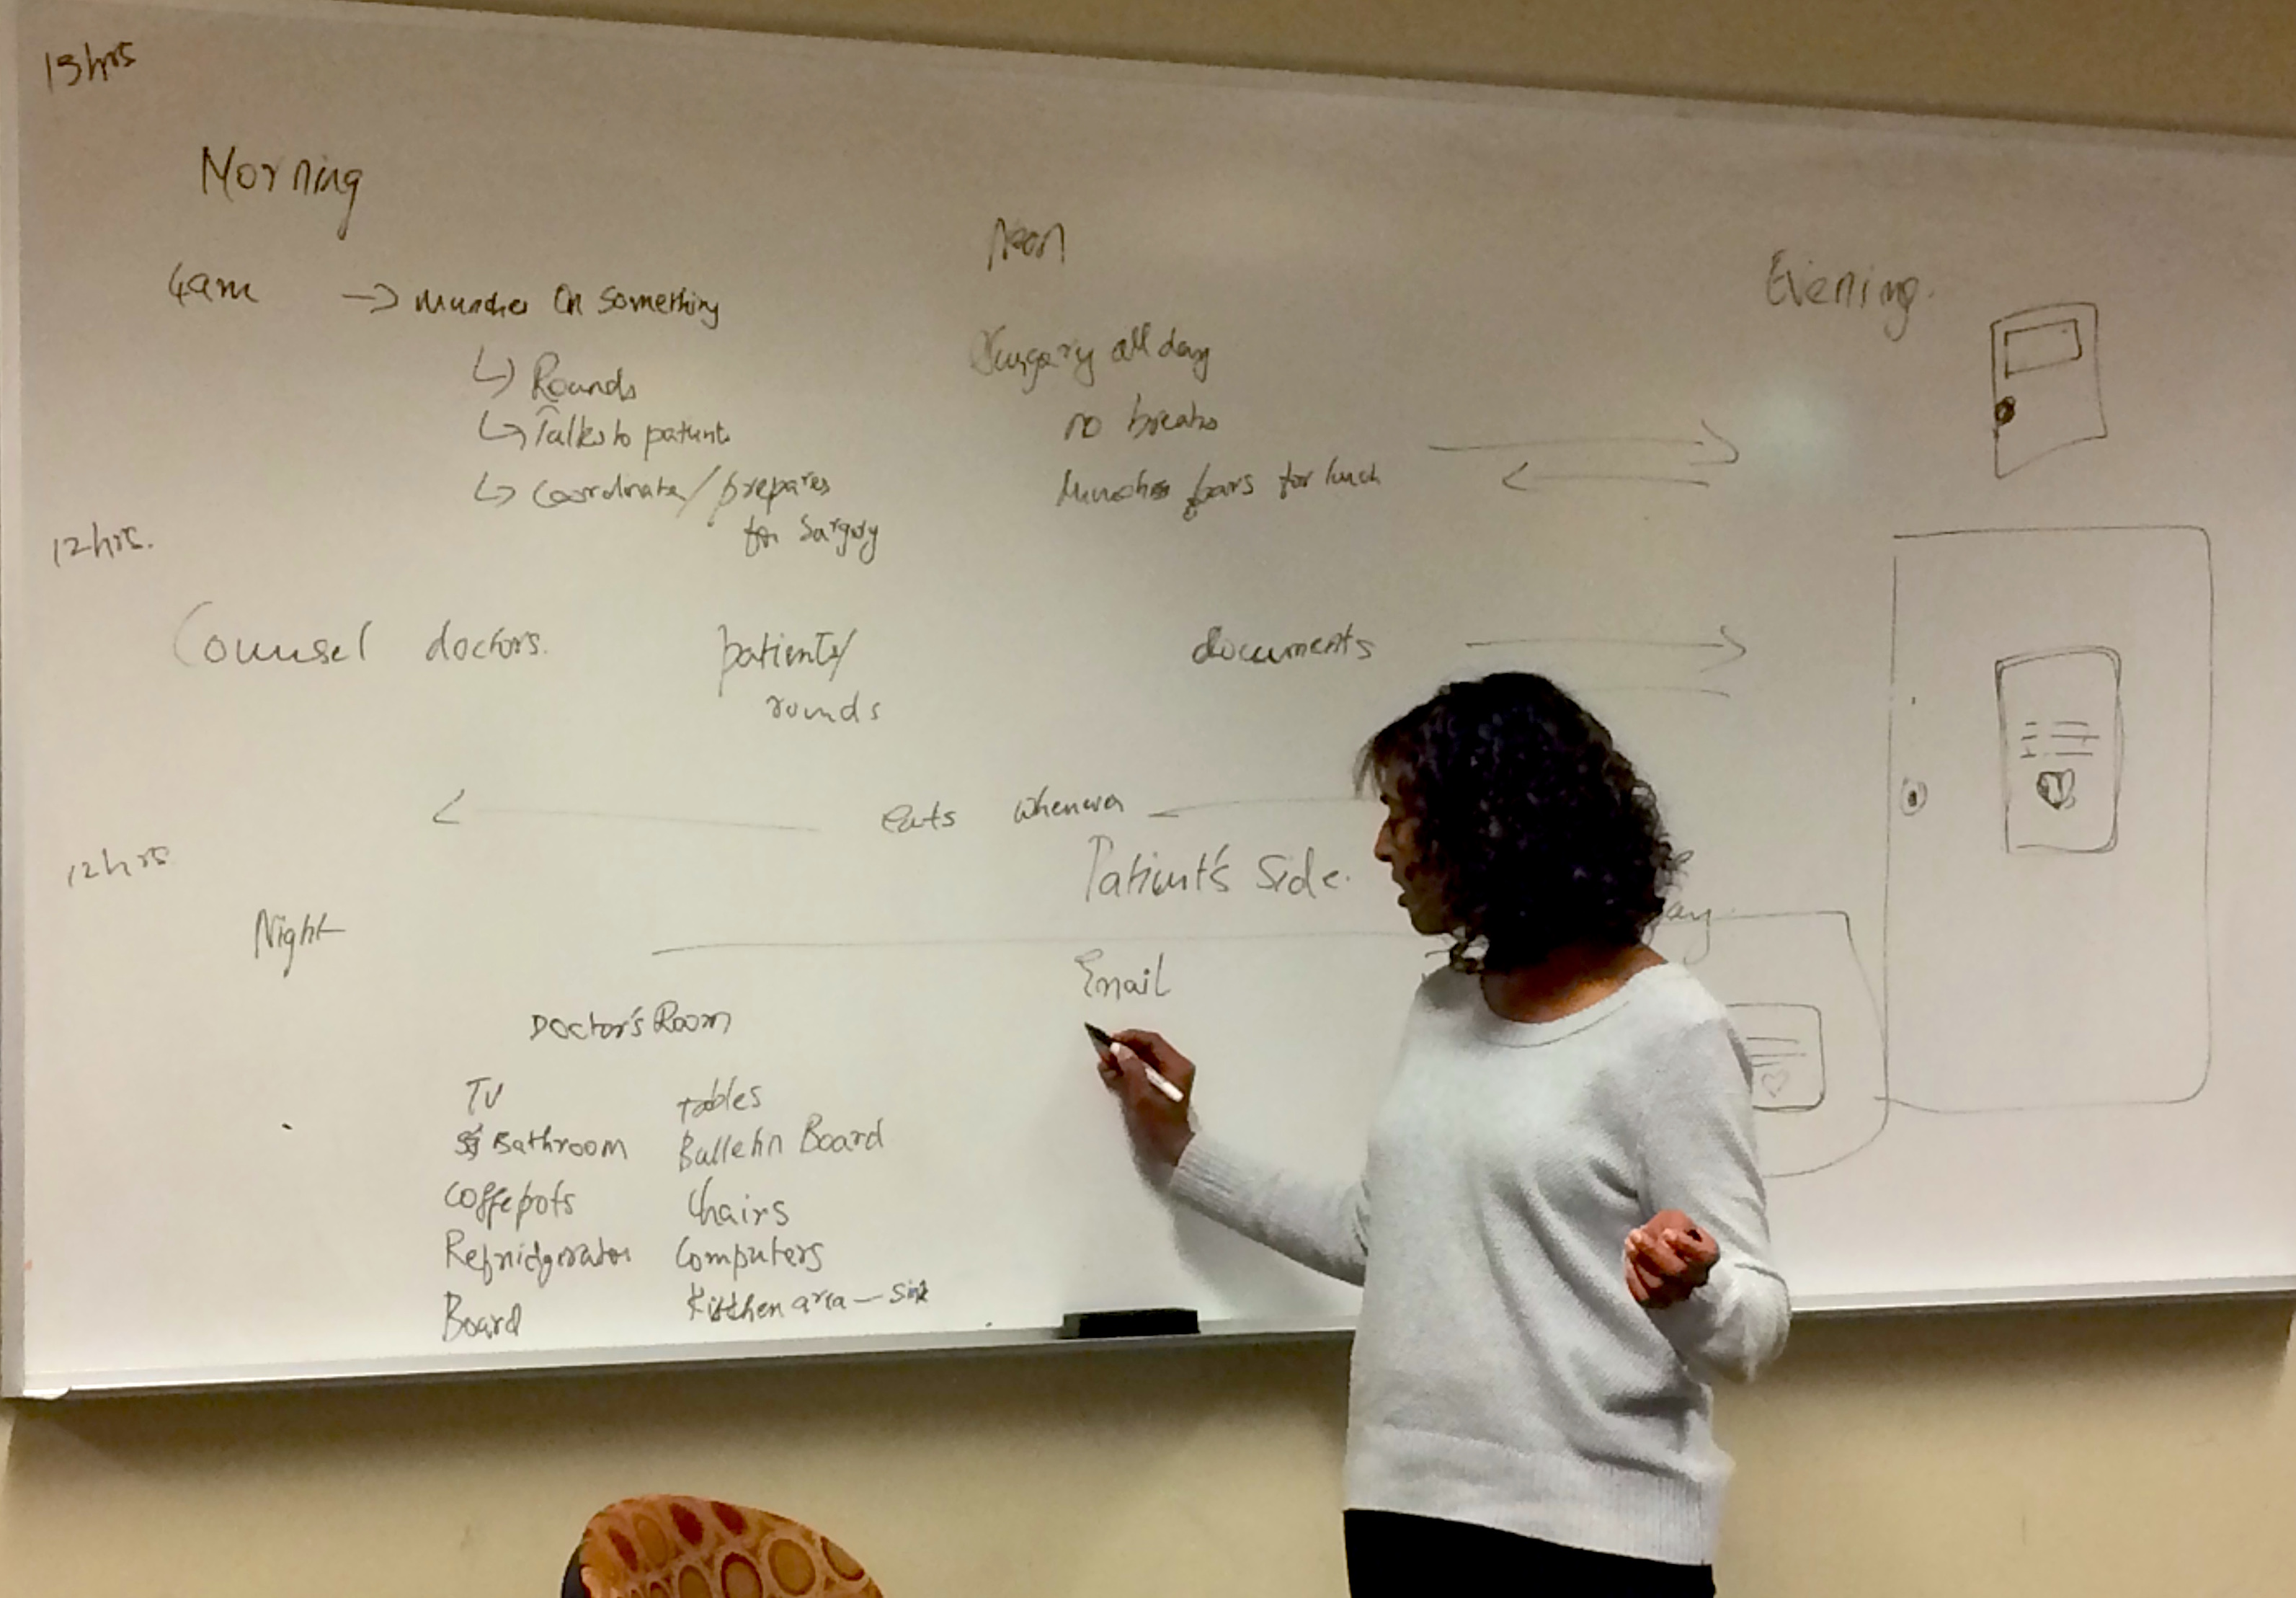 15hrs
Morning
Noon
Evening.
4am → munches on something
↳ Rounds
↳ Talks to patients
↳ Coordinates/prepares
for Surgery
Surgery all day
no breaks
Munches bars for lunch
12hrs.
Counsel doctors. patients/
rounds
documents
eats whenever
12hrs
Night
Patient's Side.
Email
Doctor's Room
TV
Bathroom
Coffepots
Refridgerator
Board
Tables
Bulletin Board
Chairs
Computers
Kitchen area – sink